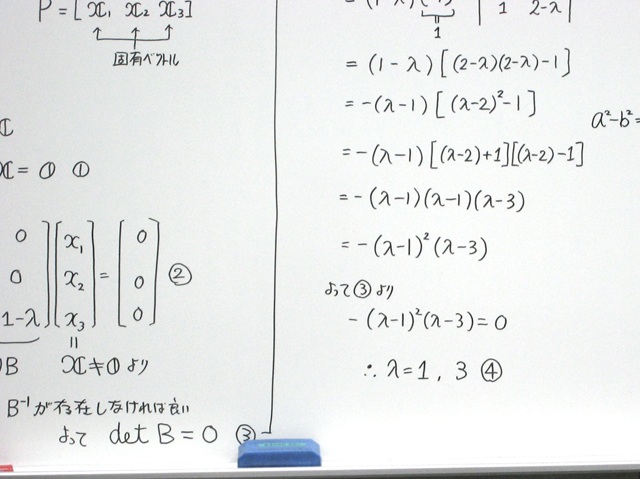 P = [ x₁ x₂ x₃ ]
固有ベクトル
x
x = 0 ①
0 [ x₁ ] [ 0 ]
0 [ x₂ ] = [ 0 ] ②
1-λ [ x₃ ] [ 0 ]
B x ≠ 0 より
B⁻¹が存在しなければ良い
よって det B = 0 ③
1
1 2-λ
= (1-λ) [ (2-λ)(2-λ)-1 ]
= -(λ-1) [ (λ-2)²-1 ]
a²-b²=
= -(λ-1) [(λ-2)+1][(λ-2)-1]
= -(λ-1)(λ-1)(λ-3)
= -(λ-1)²(λ-3)
よって③より
-(λ-1)²(λ-3) = 0
∴ λ = 1 , 3 ④